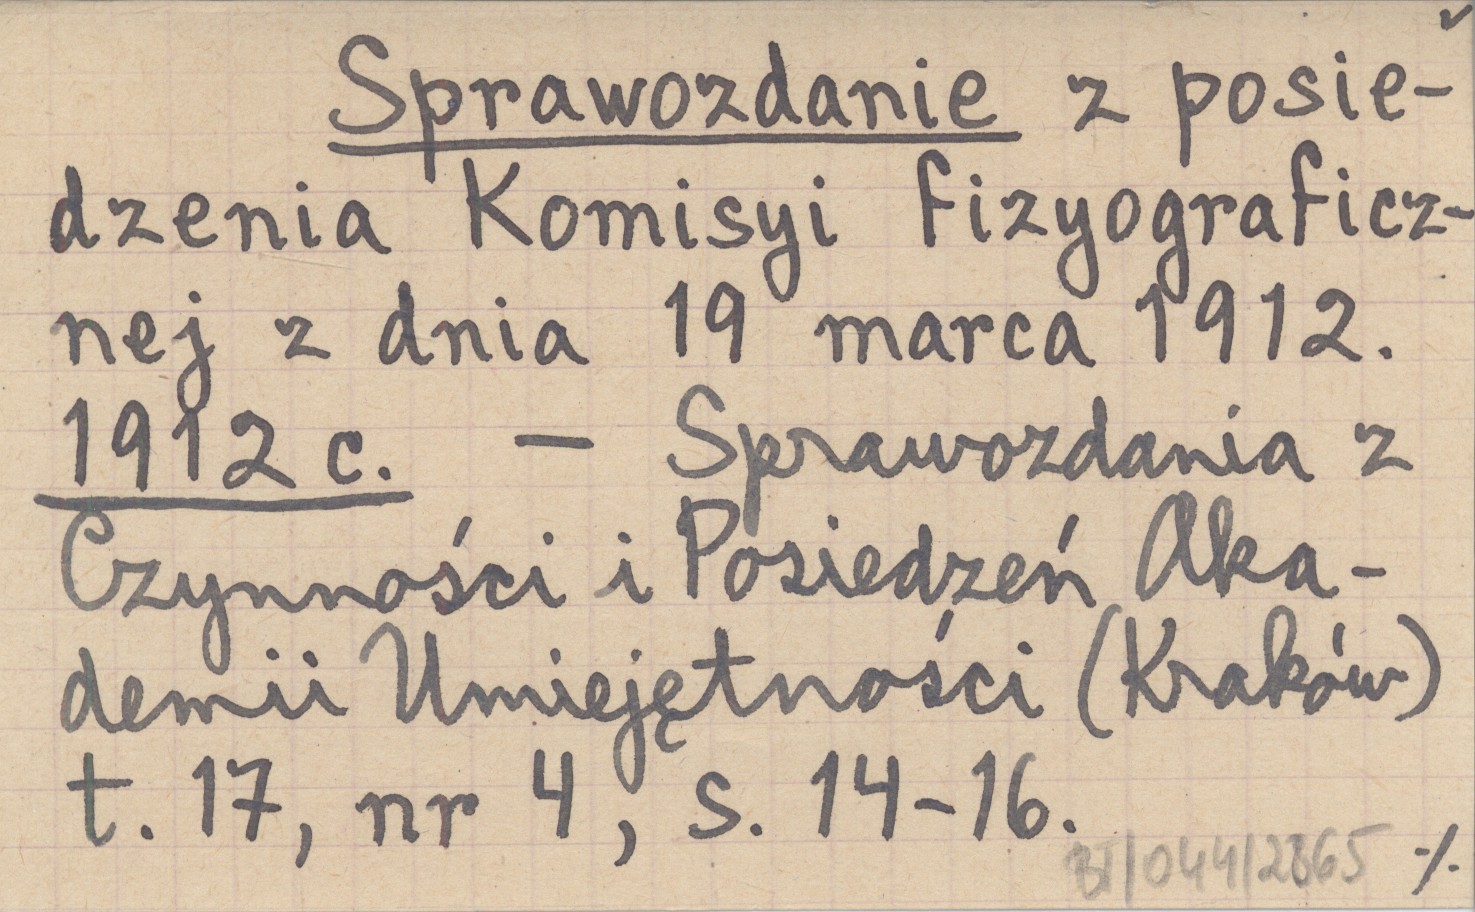 Sprawozdanie z posie-
dzenia Komisyi fizyograficz-
nej z dnia 19 marca 1912.
1912 c. — Sprawozdania z
Czynności i Posiedzeń Aka-
demii Umiejętności (Kraków)
t. 17, nr 4, s. 14-16.
BT/044/2865 ·/.